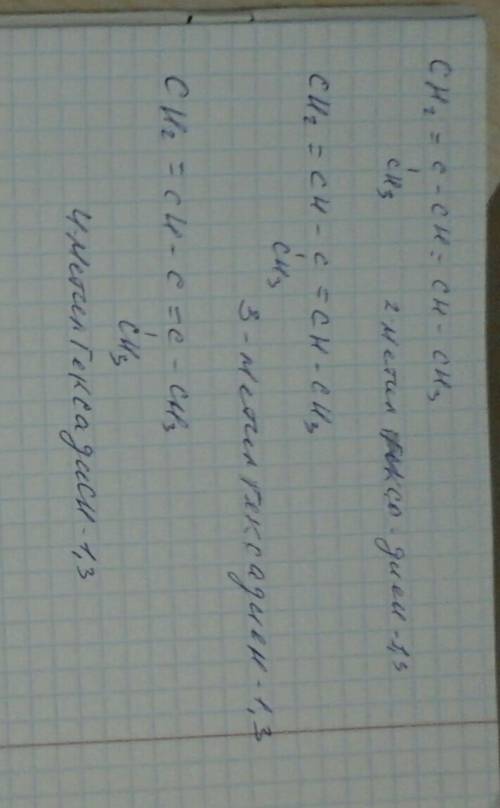 CH₂ = C - CH = CH - CH₃
CH₃
2 метил гексо-диен-1,3
CH₂ = CH - C = CH - CH₃
CH₃
3-метил гексадиен-1,3
CH₂ = CH - C = C - CH₃
CH₃
4метилгексадиен-1,3